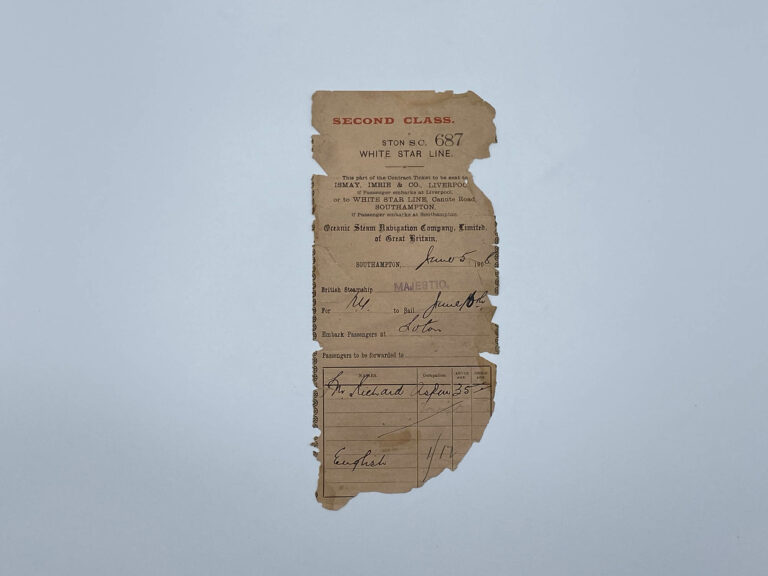 SECOND CLASS.
STON S.C. 687
WHITE STAR LINE.
This part of the Contract Ticket to be sent to
ISMAY, IMRIE & CO., LIVERPOO
if Passenger embarks at Liverpool,
or to WHITE STAR LINE, Canute Road,
SOUTHAMPTON,
if Passenger embarks at Southampton.
Oceanic Steam Navigation Company, Limited,
of Great Britain.
SOUTHAMPTON, June 5, 190
British Steamship MAJESTIC.
For to Sail June
Embark Passengers at Soton
Passengers to be forwarded to
NAMES. Occupation.
Mr. Richard Aspen 35
English 1/